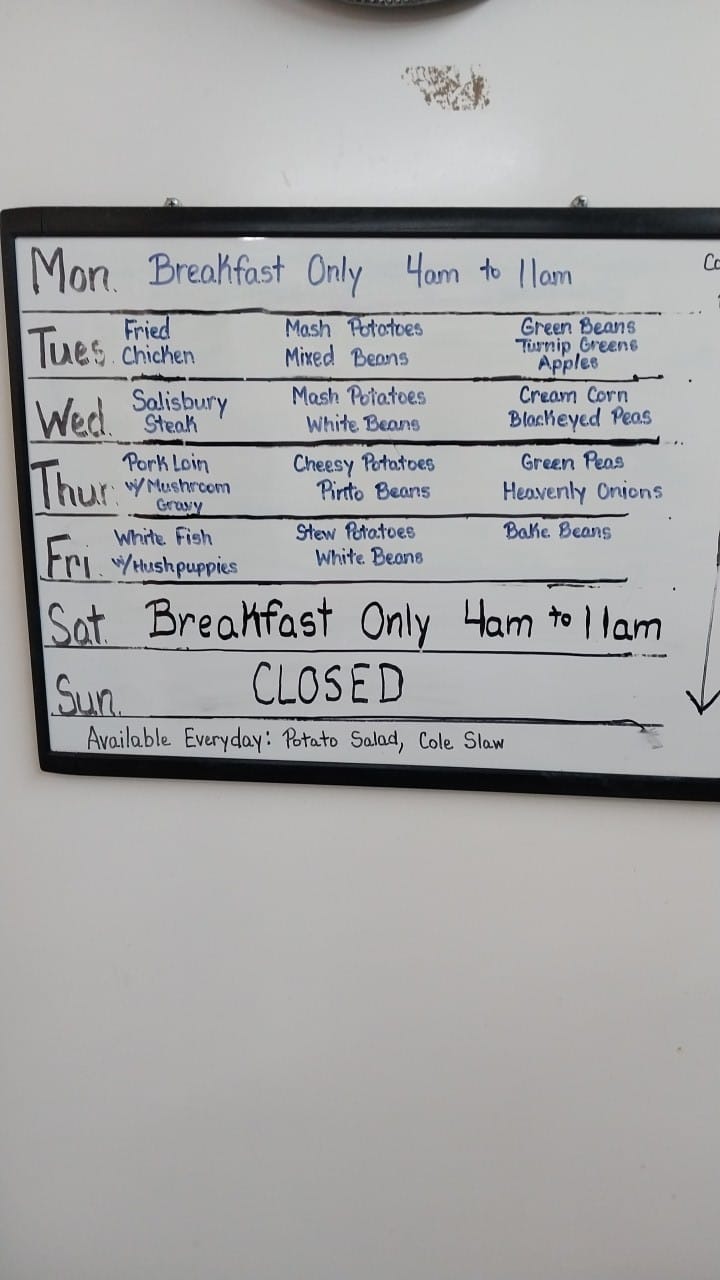 Mon. Breakfast Only 4am to 11am
Tues. Fried Chicken Mash Potatoes Mixed Beans Green Beans Turnip Greens Apples
Wed. Salisbury Steak Mash Potatoes White Beans Cream Corn Blackeyed Peas
Thur. Pork Loin w/Mushroom Gravy Cheesy Potatoes Pinto Beans Green Peas Heavenly Onions
Fri. White Fish w/Hushpuppies Stew Potatoes White Beans Bake Beans
Sat. Breakfast Only 4am to 11am
Sun. CLOSED
Available Everyday: Potato Salad, Cole Slaw